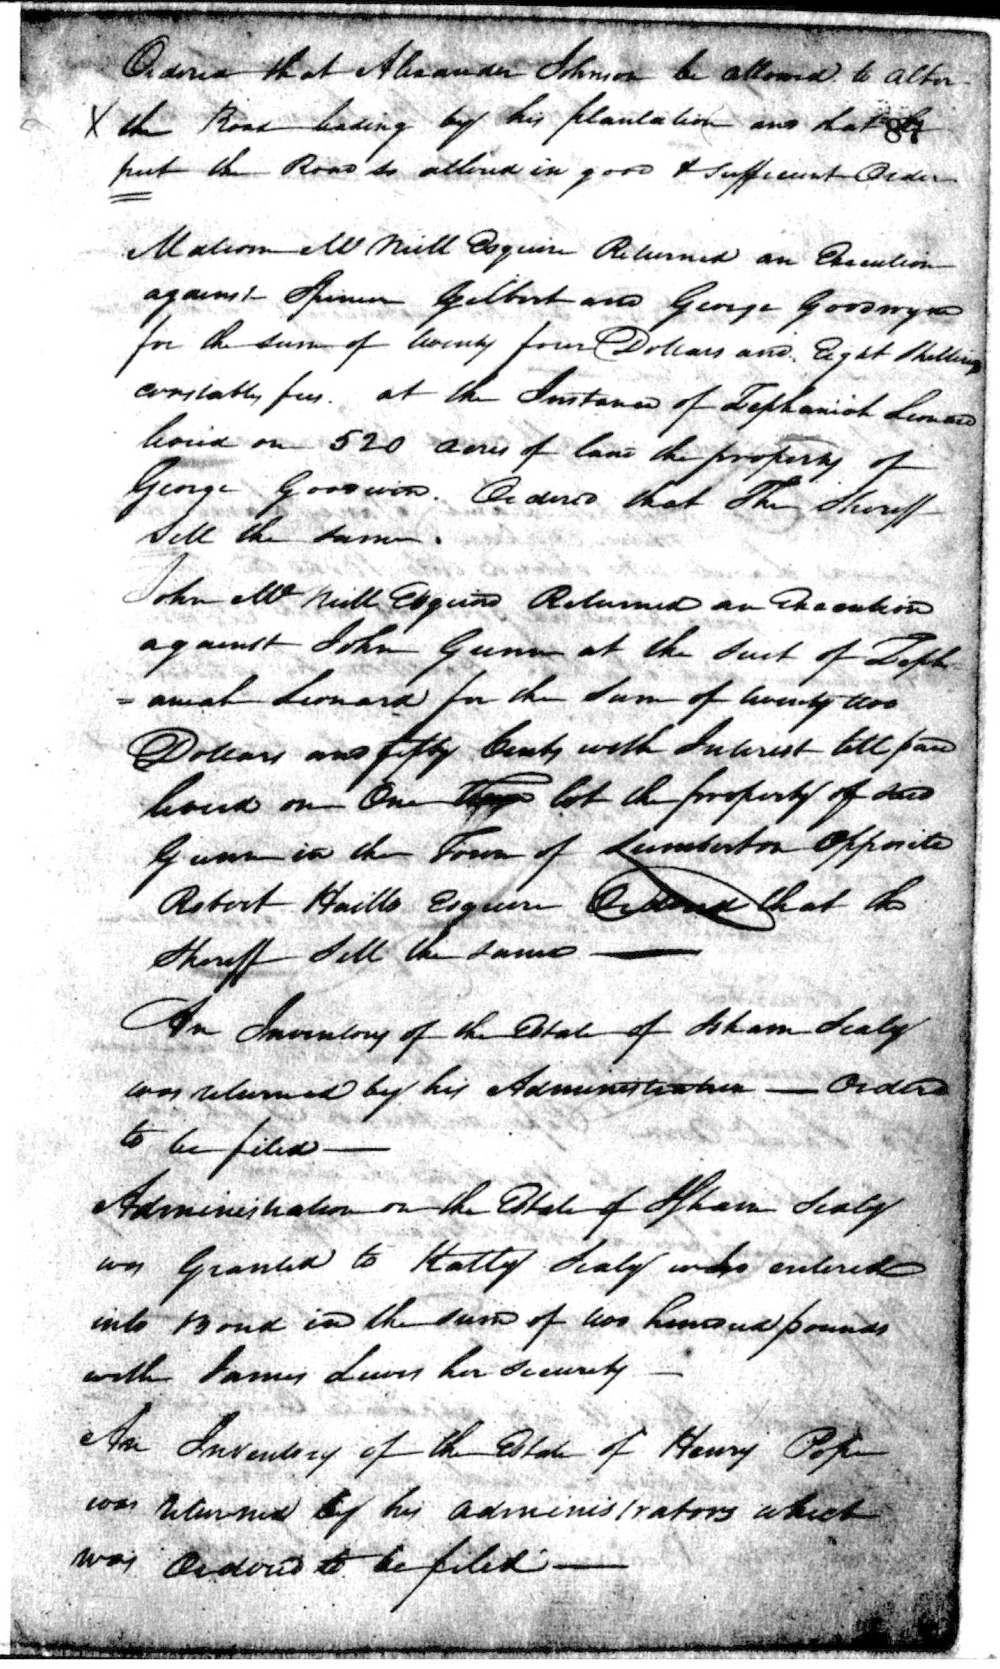 Ordered that Alexander Johnson be allowed to alter
X the Road leading by his plantation and that he
87
put the Road so altered in good & sufficient Order
Malcom McNeill Esquire Returned an Execution
against Gilbert and George Goodwyn
for the sum of twenty four Dollars and Eight Shillings
constables fees. at the Instance of Zephaniah Leonard
levied on 520 acres of land the property of
George Goodwin. Ordered that The Sheriff
Sell the same.
John McNeill Esquire Returned an Execution
against John Gunn at the suit of Zeph
=aniah Leonard for the sum of twenty two
Dollars and fifty Cents with Interest till paid
levied on One lot the property of said
Gunn in the Town of Lumberton Opposite
Robert Hails Esquire Ordered that the
Sheriff Sell the same —
An Inventory of the Estate of Isham Sealy
was returned by his Administration — Ordered
to be filed —
Administration on the Estate of Isham Sealy
was Granted to Katty Sealy who entered
into Bond in the sum of two hundred pounds
with James Lewis her security —
An Inventory of the Estate of Henry Pope
was returned by his administrators which
was Ordered to be filed —